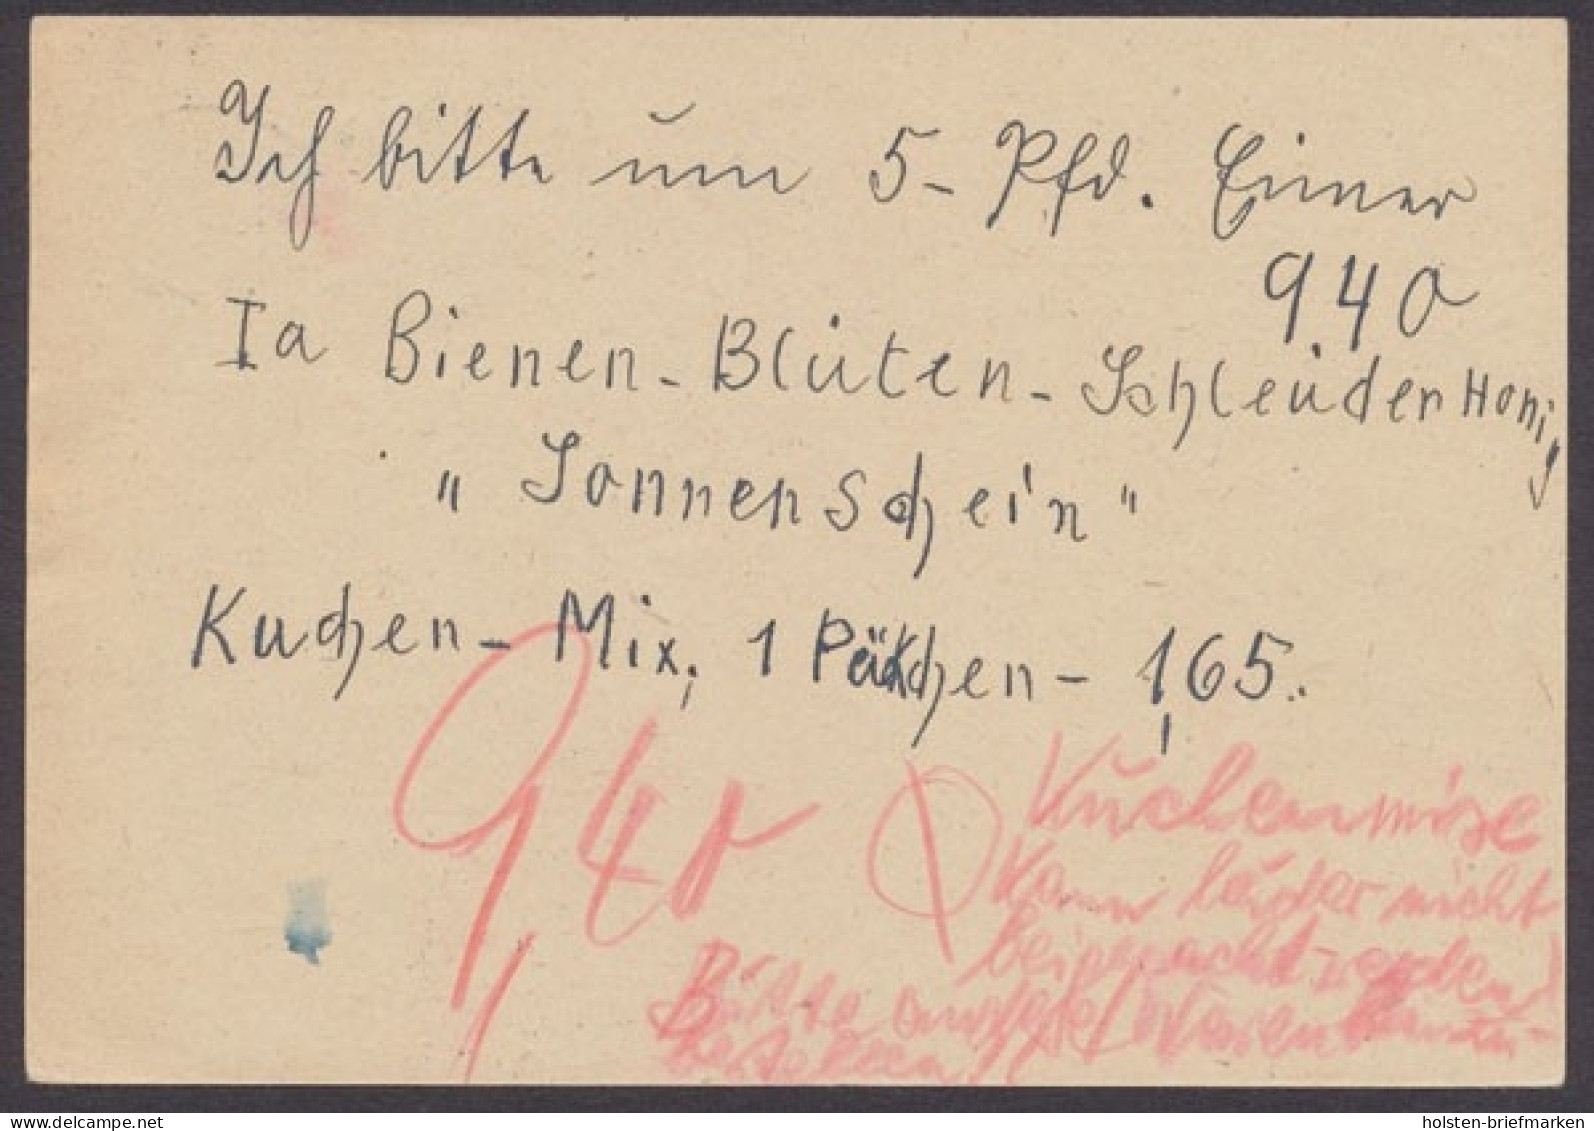 Ich bitte um 5-Pfd. Eimer
940
Ia Bienen-Blüten-Schleuder Honig
"Sonnenschein"
Kuchen-Mix, 1 Päkchen - 1,65.
9,40 Kuchenmixe
kann leider nicht
beigepackt werden
Bitte Waren
bestellen
holsten-briefmarken